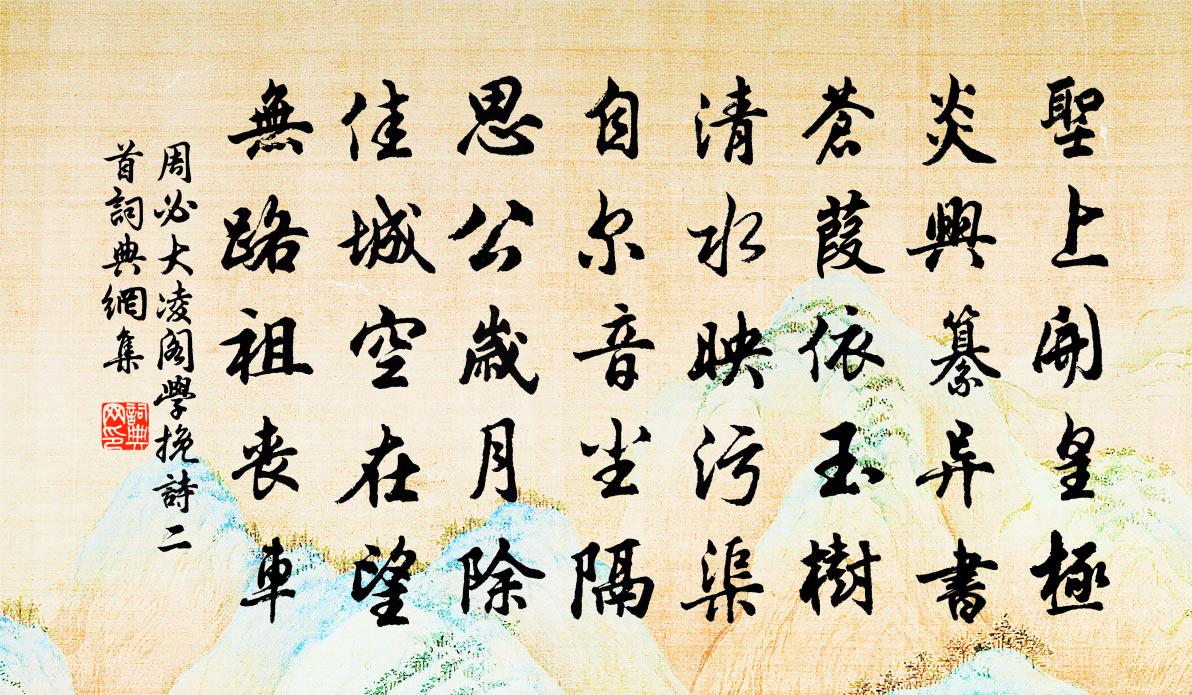 聖上開皇極
炎興纂异書
蒼葭依玉樹
清水映污渠
自尔音尘隔
思公歲月除
佳城空在望
無路祖丧車
周必大凌阁學挽詩二
首詞典網集
詞典
网印